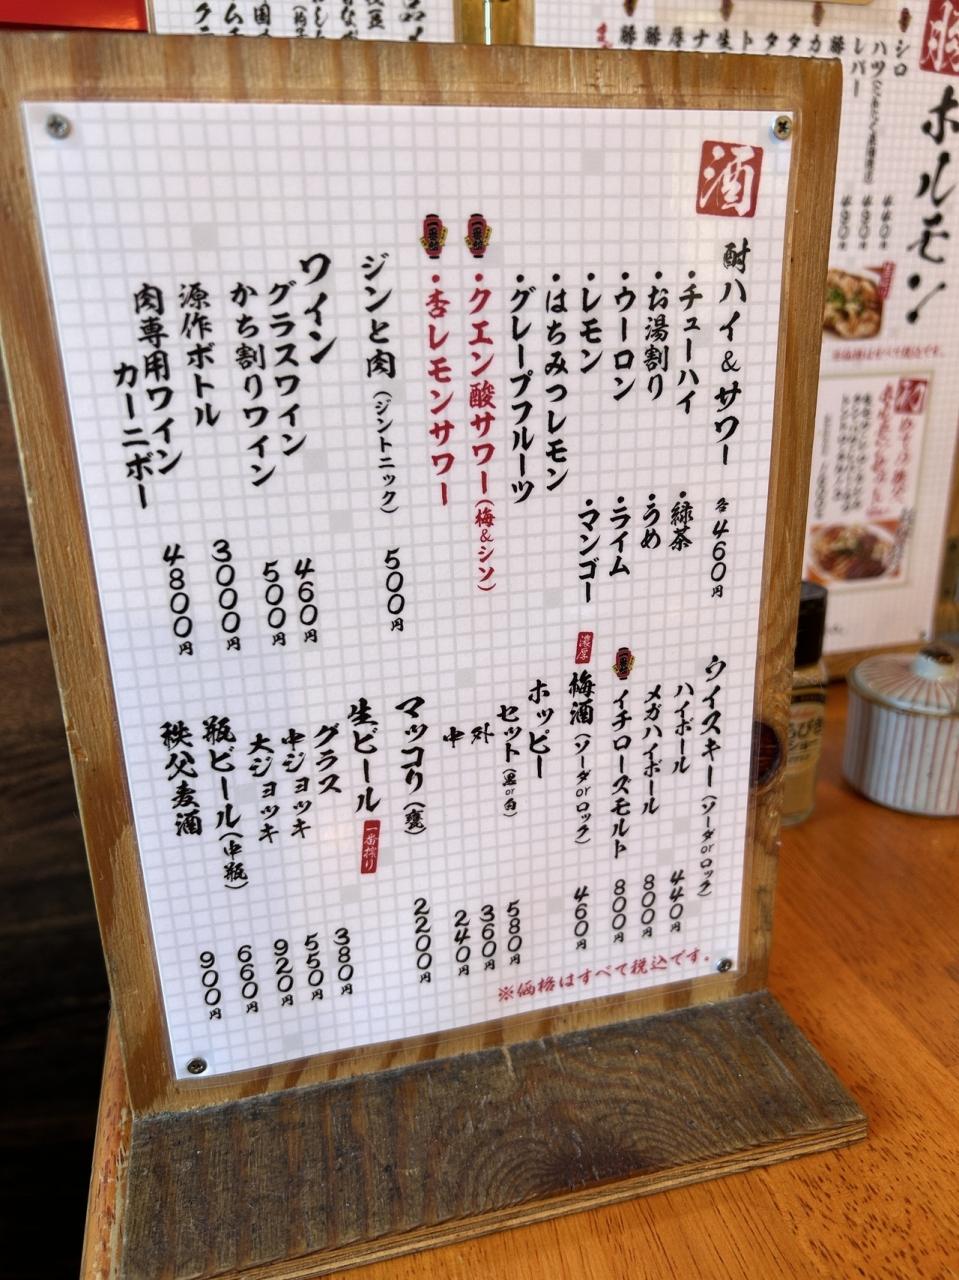 酒
酎ハイ&サワー 各460円
・チューハイ
・お湯割り
・ウーロン
・レモン
・はちみつレモン
・グレープフルーツ
・緑茶
・うめ
・ライム
・マンゴー
・クエン酸サワー(梅&シソ)
・杏レモンサワー
ジンと肉(ジントニック) 500円
ワイン
グラスワイン 460円
かち割りワイン 500円
源作ボトル 3000円
肉専用ワイン
カーニボー 4800円
ウイスキー(ソーダorロック)
ハイボール 440円
メガハイボール 800円
イチローズモルト 800円
濃厚
梅酒(ソーダorロック) 460円
ホッピー
セット(黒or白) 580円
外 360円
中 240円
マッコリ(甕) 2200円
生ビール 一番搾り
グラス 380円
中ジョッキ 550円
大ジョッキ 920円
瓶ビール(中瓶) 660円
秩父麦酒 900円
※価格はすべて税込です。
ホルモン
シロ 440円
ハツ
レバー
酒